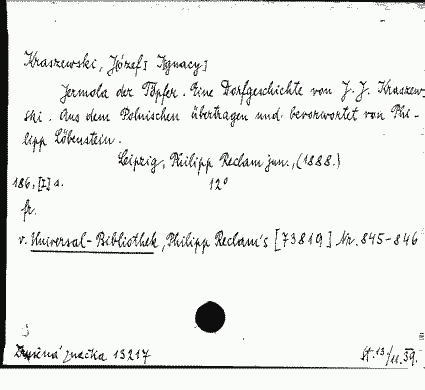 Kraszewski, J[ózef] I[gnacy]
Jermola der Töpfer. Eine Dorfgeschichte von J. J. Kraszew-
ski. Aus dem Polnischen übertragen und bevorwortet von Phi-
lipp Löbenstein.
Leipzig, Philipp Reclam jun., (1888.)
186, [I] s. 12°
fr.
v. Universal-Bibliothek, Philipp Reclam's [73819] Nr. 845-846
značka 13217
St. 13/11.39.